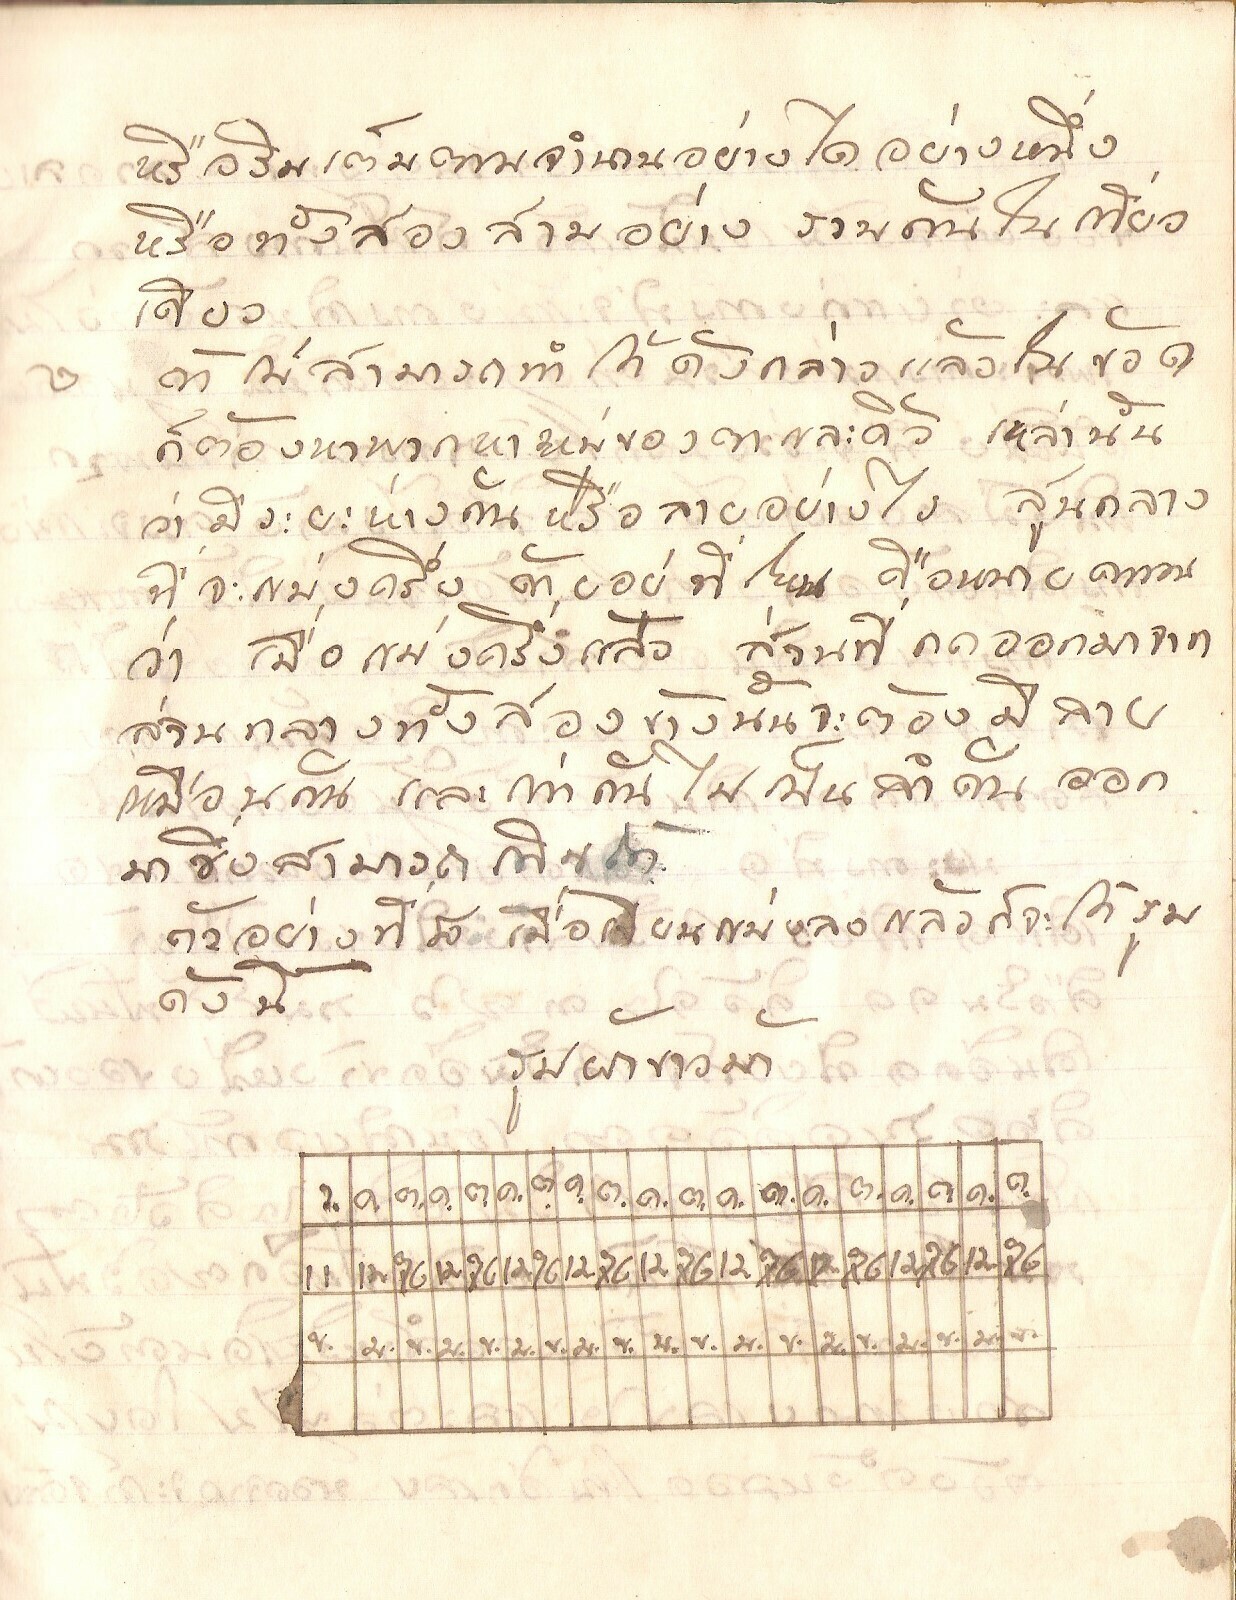 หรือริมเต็มตามจำนวนอย่างใดอย่างหนึ่ง
หรือทั้งสองสามอย่าง รวมกันในเที่ยว
เดียว
๒ ถ้าไม่สามารถทำได้ดังกล่าวแล้วใน
ก็ต้องหา ของตาและคิว เหล่านั้น
ว่ามีระยะห่างกันหรือลายอย่างไร สูนกลาง
ที่จะแบ่งครึ่ง อยู่ที่ไหน คือหมายความ
ว่า เมื่อแบ่งครึ่งแล้ว ส่วนที่ถดออกมาจาก
ส่วนกลางทั้งสองข้างนั้นจะต้องมีลาย
เหมือนกัน และเท่ากันไปเป็นลำดับ ออก
มาซึ่งสามารถ
ตัวอย่างที่ ๒ เมื่อเขียนแบ่งลงแล้วก็จะได้รูป
ดังนี้
รูปผ้าขาวม้า
ร. ค. ต. ค. ต. ค. ต. ค. ต. ค. ต. ค. ต. ค. ต. ค. ต. ค. ต.
11 12 36 12 36 12 36 12 36 12 36 12 36 12 36 12 36 12 36
ข. ม. ข. ม. ข. ม. ข. ม. ข. ม. ข. ม. ข. ม. ข. ม. ข. ม. ข.